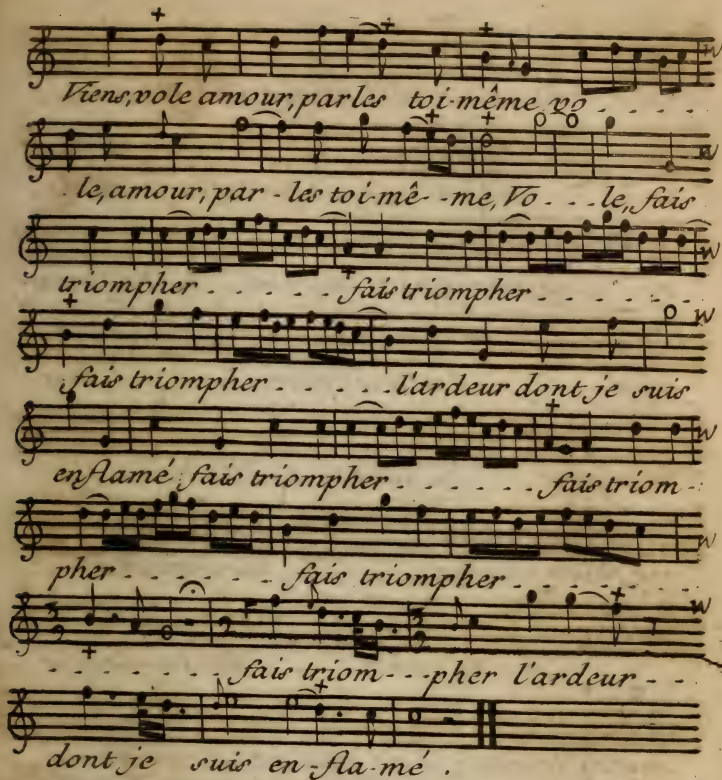 Viens, vole amour, parles toi-même vo - - - -
le, amour, par - les toi-mê - me, Vo - - - le, fais
triompher - - - - - fais triompher - - - - -
fais triompher - - - - - l'ardeur dont je suis
enflamé fais triompher - - - - - fais triom -
pher - - - - - - fais triompher - - - - - -
- - - - - - fais triom - - - pher l'ardeur - - -
dont je suis en-fla-mé .